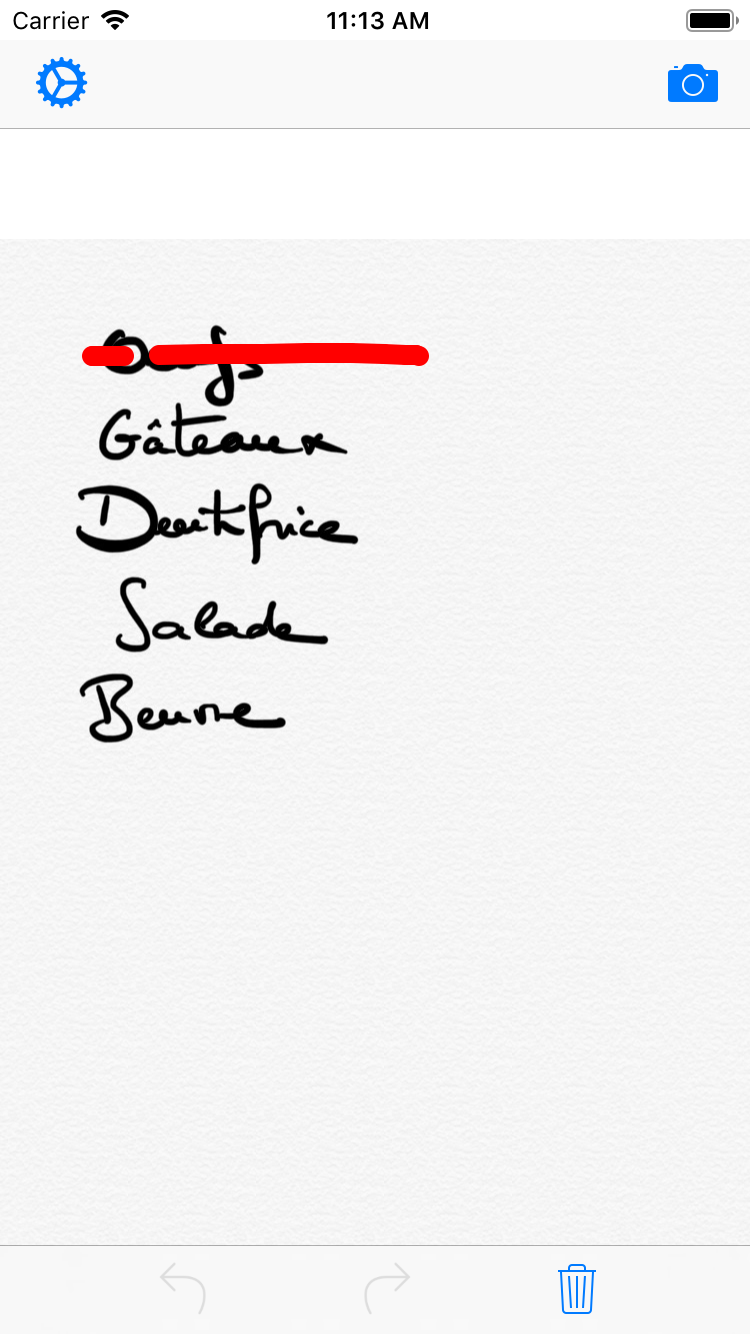 Carrier 11:13 AM
Oeufs
Gâteaux
Dentifrice
Salade
Beurre